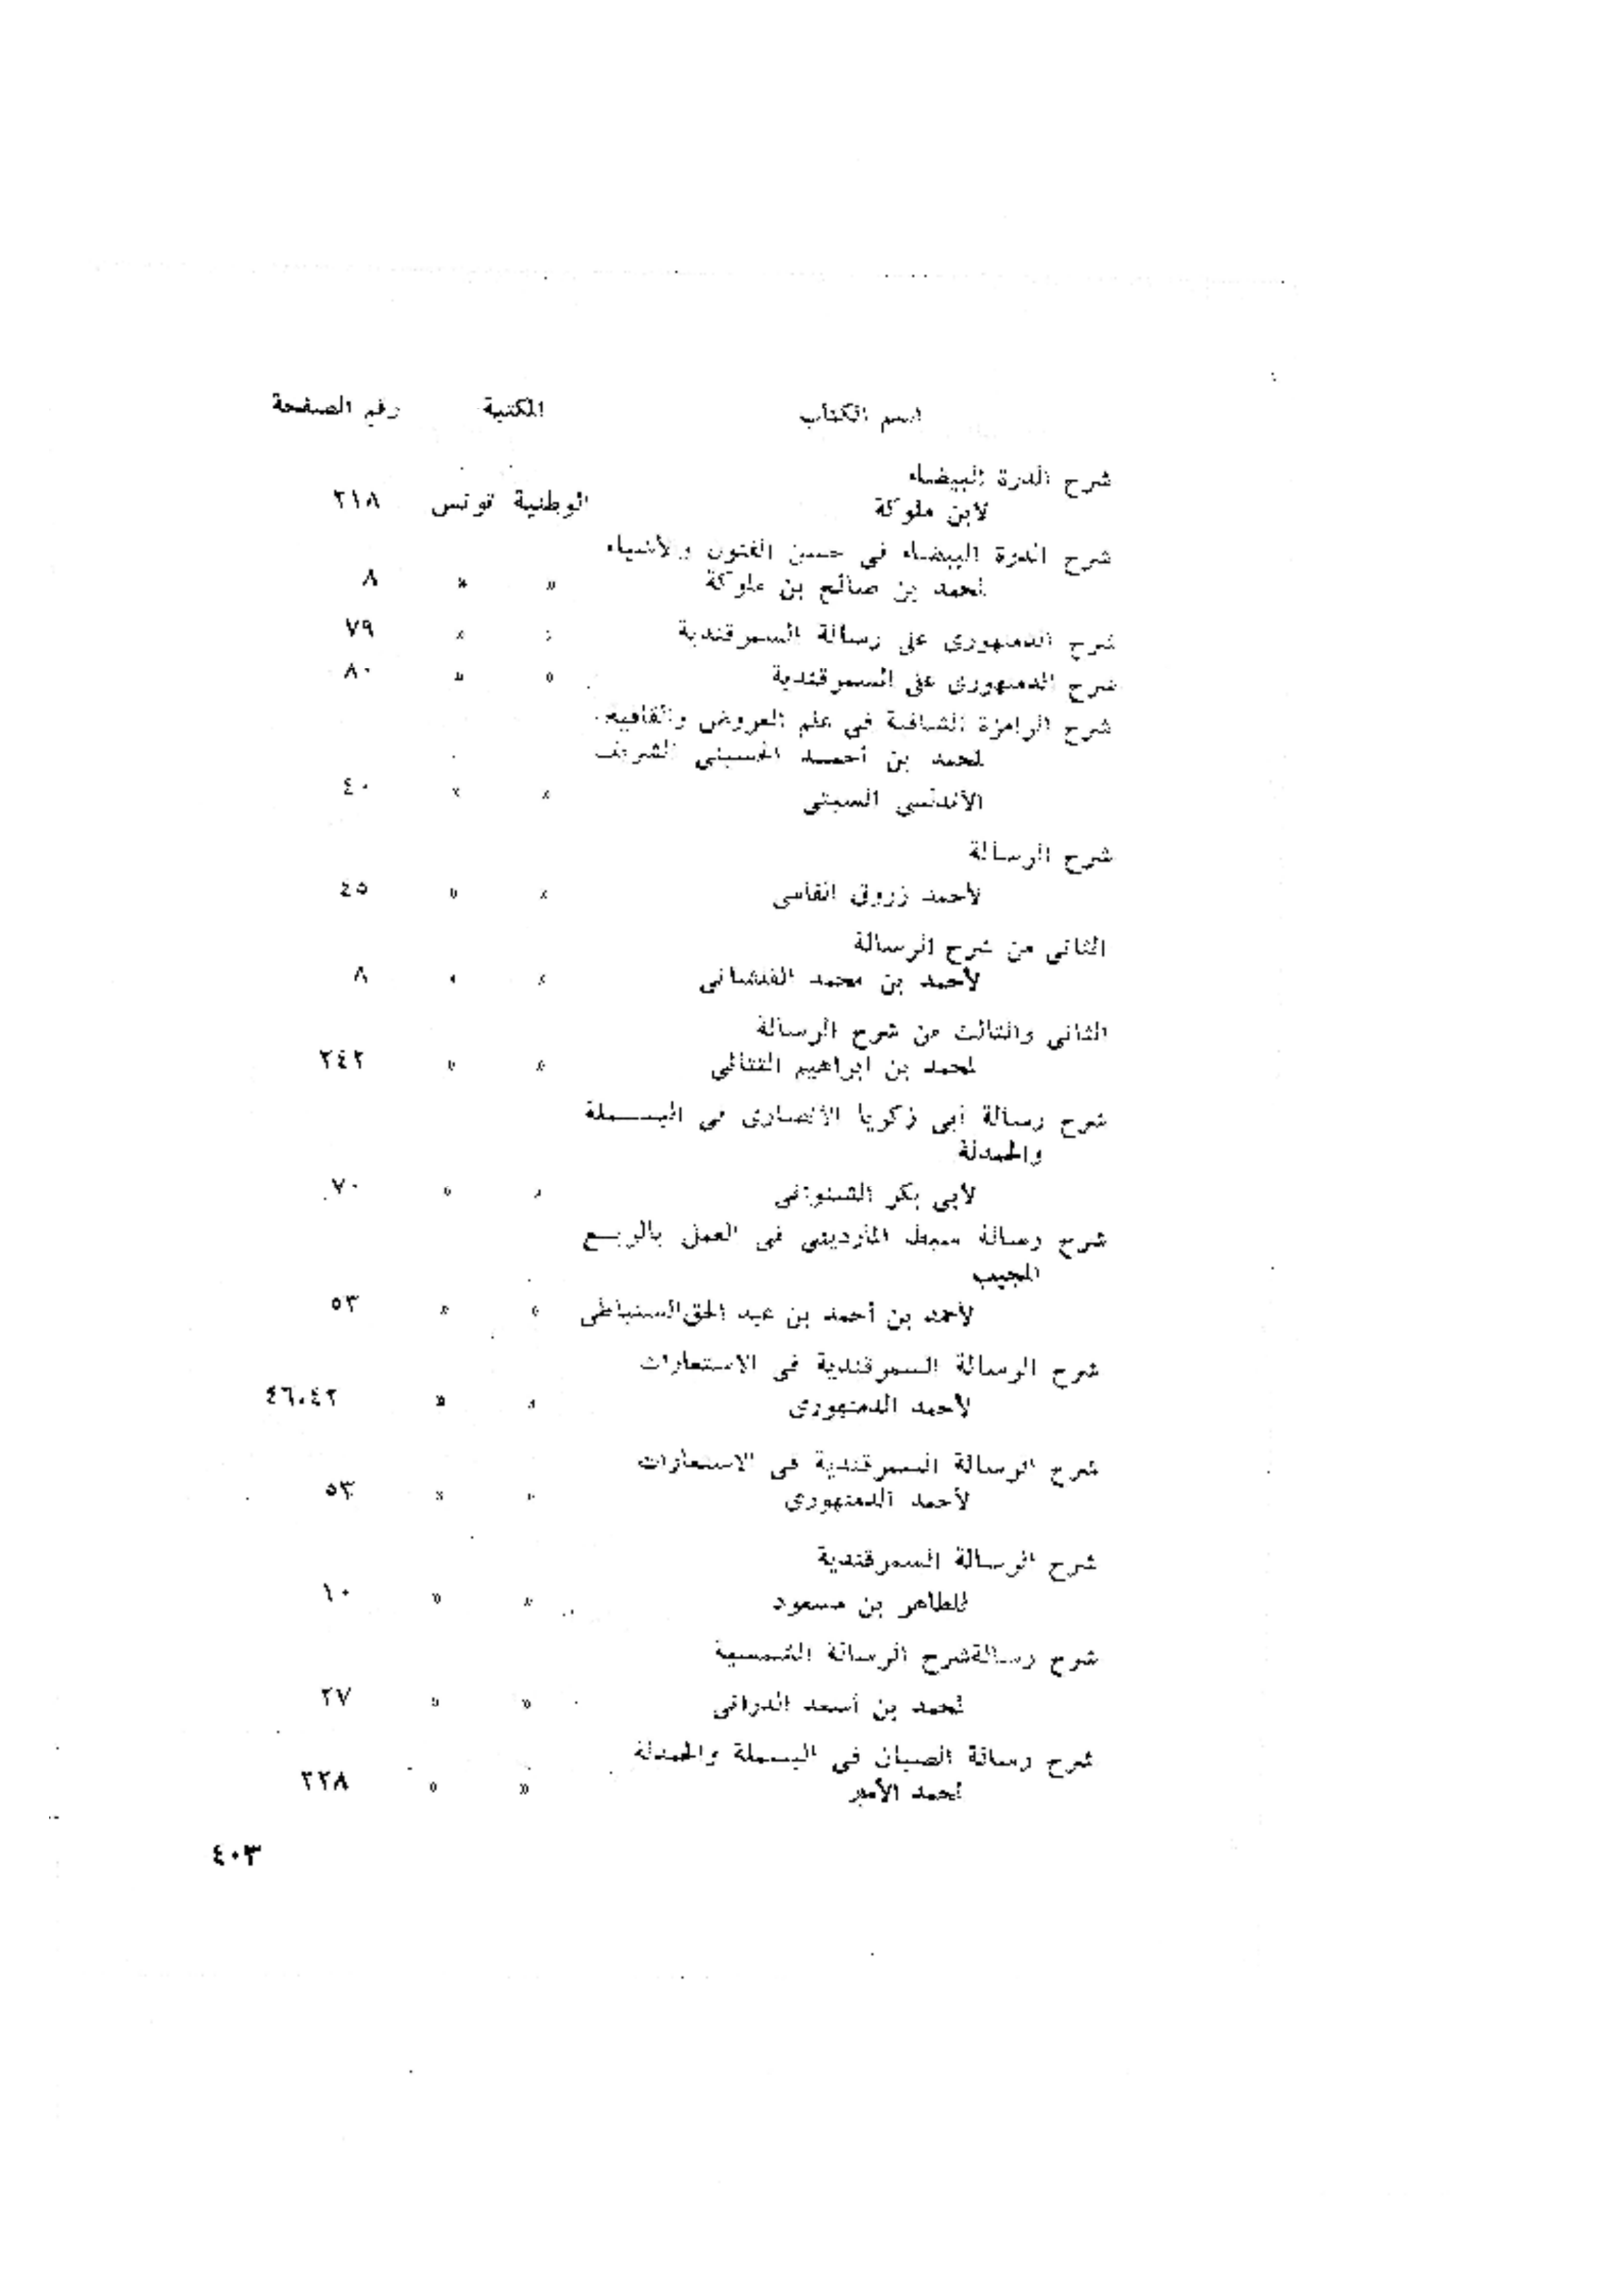 اسم الكتاب المكتبة رقم الصفحة
شرح الدرة البيضاء
لابن ملوكة الوطنية تونس ٢١٨
شرح الدرة البيضاء في حسن الفنون والأشياء
لمحمد بن صالح بن ملوكة » » ٨
شرح الدمنهورى على رسالة السمرقندية » » ٧٩
شرح الدمنهورى على السمرقندية » » ٨٠
شرح الرامزة الشافية في علم العروض والقافية
لمحمد بن أحمد الحسينى الشريف
الأندلسى السبتى » » ٤٠
شرح الرسالة
لأحمد زروق الفاسى » » ٤٥
الثانى من شرح الرسالة
لأحمد بن محمد القلشانى » » ٨
الثانى والثالث من شرح الرسالة
لمحمد بن ابراهيم التتائى » » ٢٤٢
شرح رسالة أبى زكريا الأنصارى في البسملة
والحمدلة
لأبى بكر الشنوانى » » ٧٠
شرح رسالة سبط الماردينى في العمل بالربع
المجيب
لأحمد بن أحمد بن عبد الحق السنباطى » » ٥٣
شرح الرسالة السمرقندية في الاستعارات
لأحمد الدمنهورى » » ٤٦،٤٢
شرح الرسالة السمرقندية في الاستعارات
لأحمد الدمنهورى » » ٥٣
شرح الرسالة السمرقندية
للطاهر بن مسعود » » ١٠
شرح رسالة شرح الرسالة الشمسية
لمحمد بن أسعد الدوانى » » ٢٧
شرح رسالة الصبان في البسملة والحمدلة
لمحمد الأمير » » ٢٢٨
٤٠٣